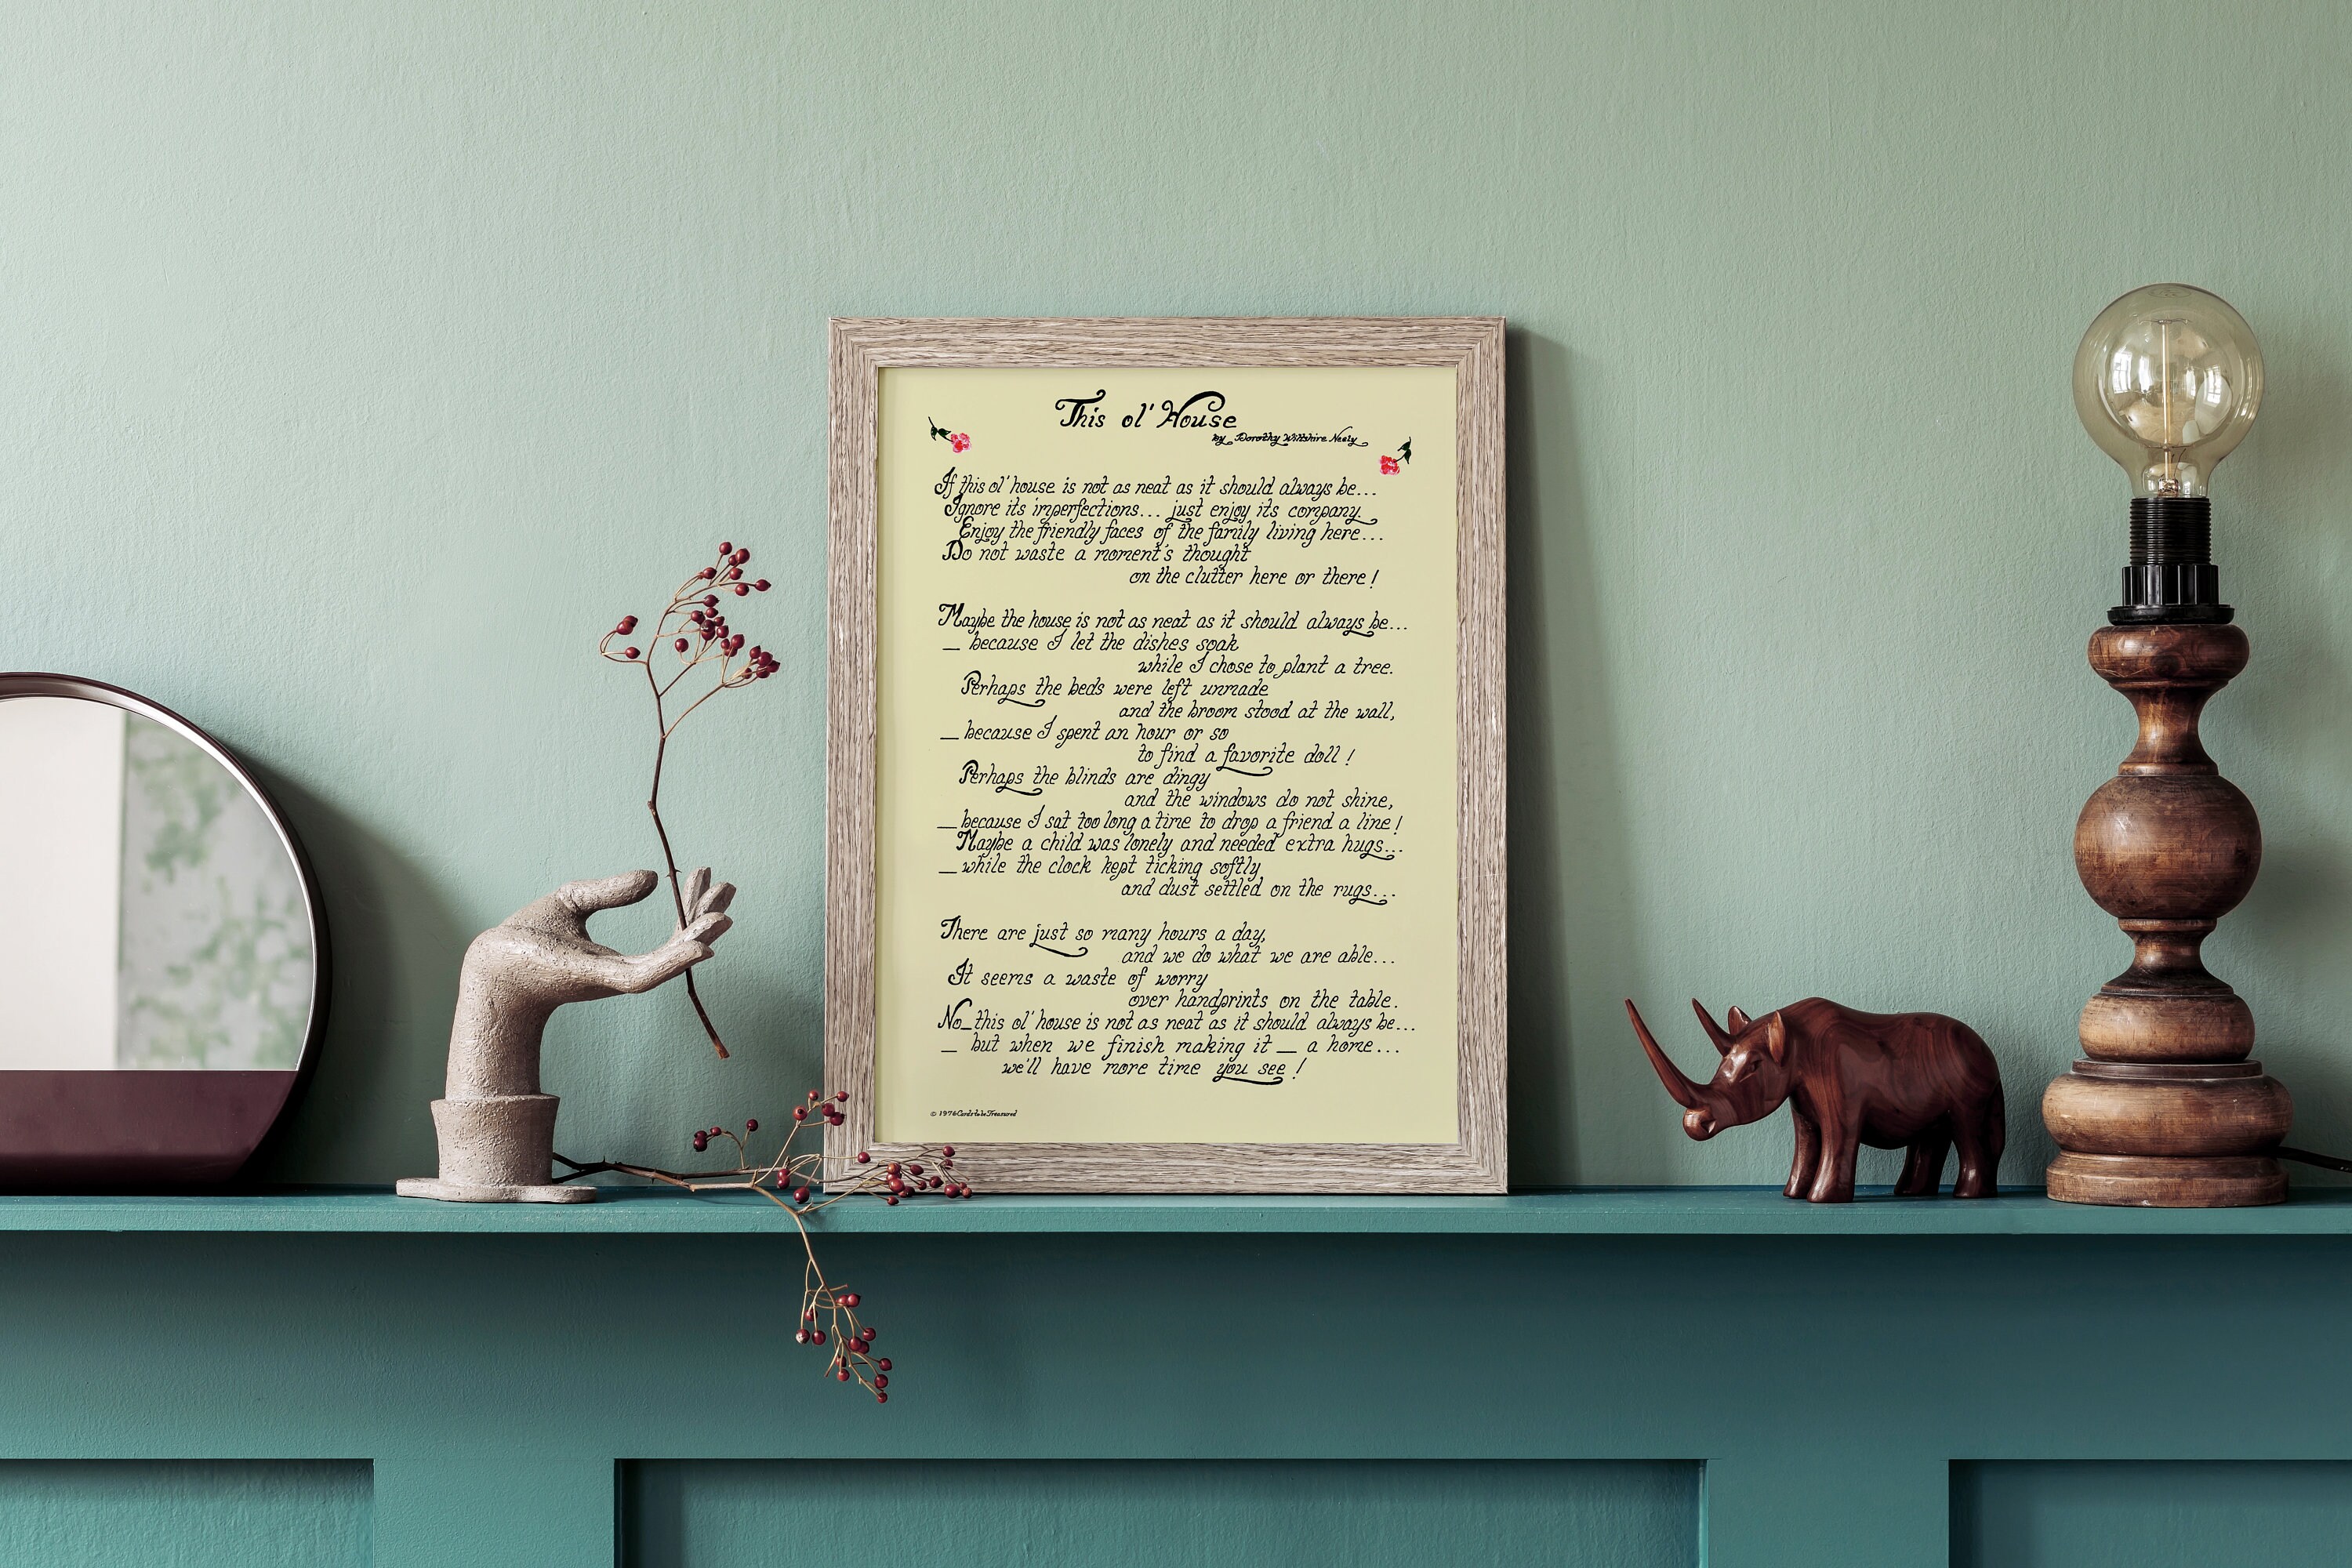 This ol' House
by Dorothy Wiltshire Neely
If this ol' house is not as neat as it should always be...
Ignore its imperfections... just enjoy its company.
Enjoy the friendly faces of the family living here...
Do not waste a moment's thought
on the clutter here or there!
Maybe the house is not as neat as it should always be...
_ because I let the dishes soak
while I chose to plant a tree.
Perhaps the beds were left unmade
and the broom stood at the wall,
_ because I spent an hour or so
to find a favorite doll!
Perhaps the blinds are dingy
and the windows do not shine,
_ because I sat too long a time to drop a friend a line!
Maybe a child was lonely and needed extra hugs...
_ while the clock kept ticking softly
and dust settled on the rugs...
There are just so many hours a day,
and we do what we are able...
It seems a waste of worry
over handprints on the table.
No_ this ol' house is not as neat as it should always be...
_ but when we finish making it _ a home...
we'll have more time you see!
© 1976 Cards to be Treasured